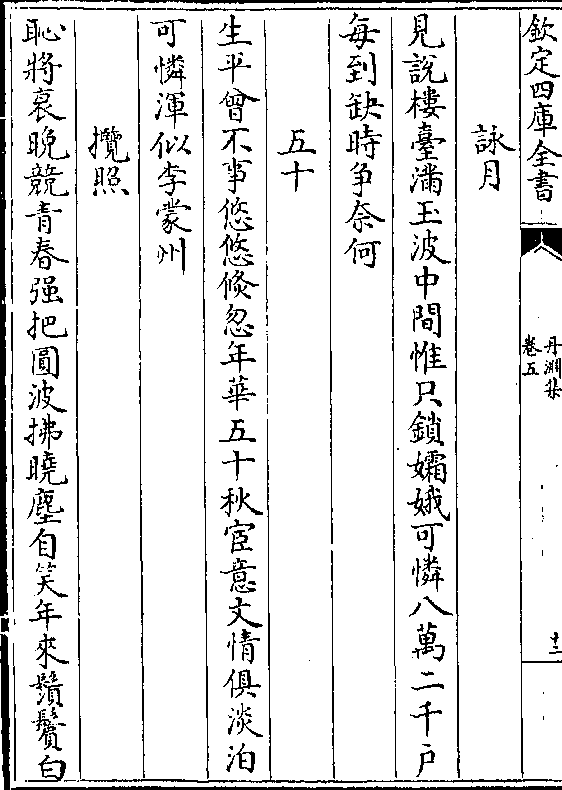 欽定四庫全書
丹淵集
卷五
十二
詠月
見說樓臺滿玉波中間惟只鎖孀娥可憐八萬二千戶
每到缺時争奈何
五十
生平曾不事悠悠倐忽年華五十秋宦意文情俱淡泊
可憐渾似李蒙州
攬照
恥將衰晚競青春强把圓波拂曉塵自笑年來鬚鬢白